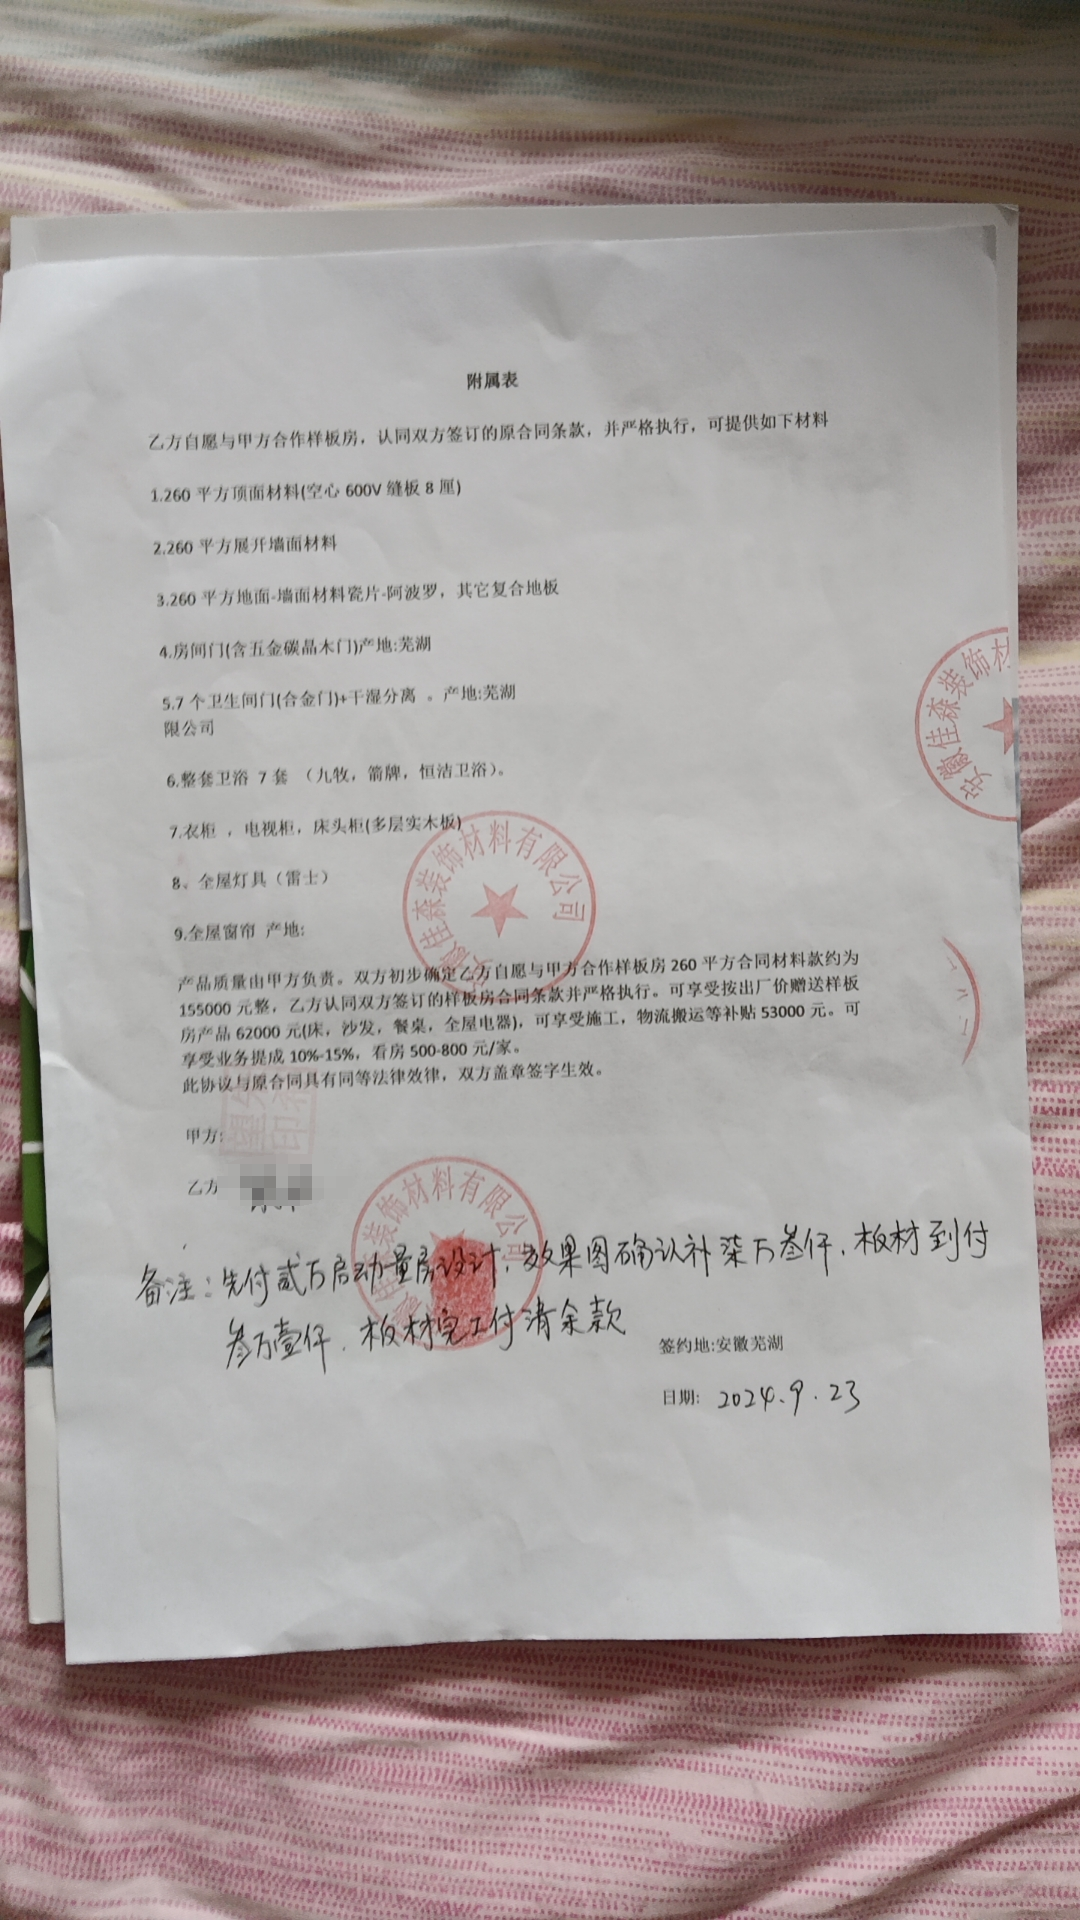 附属表
乙方自愿与甲方合作样板房，认同双方签订的原合同条款，并严格执行，可提供如下材料
1.260 平方顶面材料(空心 600V 缝板 8 厘)
2.260 平方展开墙面材料
3.260 平方地面-墙面材料瓷片-阿波罗，其它复合地板
4.房间门(含五金碳晶木门)产地:芜湖
5.7 个卫生间门(合金门)+干湿分离 。产地:芜湖
限公司
6.整套卫浴 7 套 （九牧，箭牌，恒洁卫浴）。
7.衣柜 ，电视柜，床头柜(多层实木板)
8、全屋灯具（雷士）
9.全屋窗帘 产地:
产品质量由甲方负责。双方初步确定乙方自愿与甲方合作样板房 260 平方合同材料款约为
155000 元整，乙方认同双方签订的样板房合同条款并严格执行。可享受按出厂价赠送样板
房产品 62000 元(床，沙发，餐桌，全屋电器)，可享受施工，物流搬运等补贴 53000 元。可
享受业务提成 10%-15%，看房 500-800 元/家。
此协议与原合同具有同等法律效律，双方盖章签字生效。
甲方:
乙方
备注：先付贰万启动量房设计，效果图确认补柒万叁仟，板材到付
叁万壹仟，板材完工付清余款
签约地:安徽芜湖
日期: 2024.9.23
安徽佳森装饰材
佳森装饰材料有限公司
装饰材料有限公司